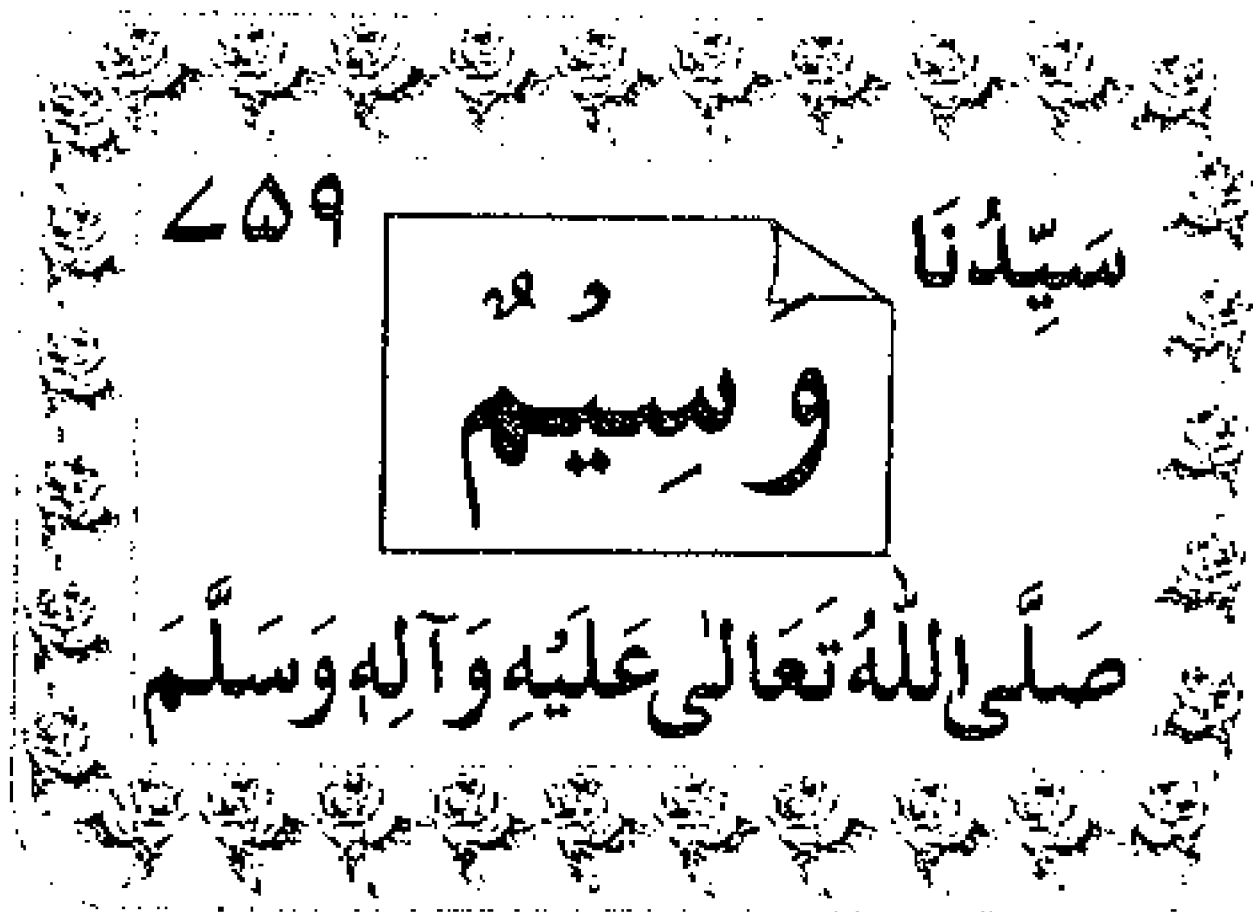 سَيِّدُنَا ۷۵۹
وَسِيْمٌ
صَلَّى اللّٰهُ تَعَالٰى عَلَيْهِ وَآلِهٖ وَسَلَّمَ